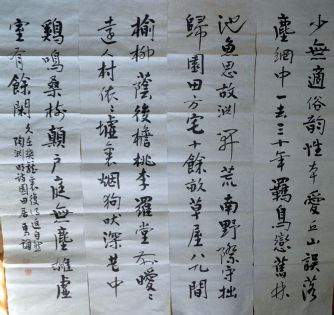 少無適俗韵性本愛丘山誤落
塵網中一去三十年羈鳥戀舊林
池魚思故淵開荒南野際守拙
歸園田方宅十餘畝草屋八九間
榆柳蔭後檐桃李羅堂前曖〻
遠人村依〻墟裏烟狗吠深巷中
鷄鳴桑樹顛户庭無塵雜虛
室有餘閑
久在樊籠裏復得返自然
陶淵明詩園田居